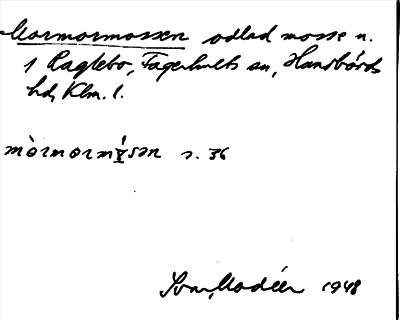 Mormormossen odlad mosse n.
1 Raglebo, Fagerhults sn, Handbörds
hd, Klm. l.
s. 36
Ivar Modéer 1948